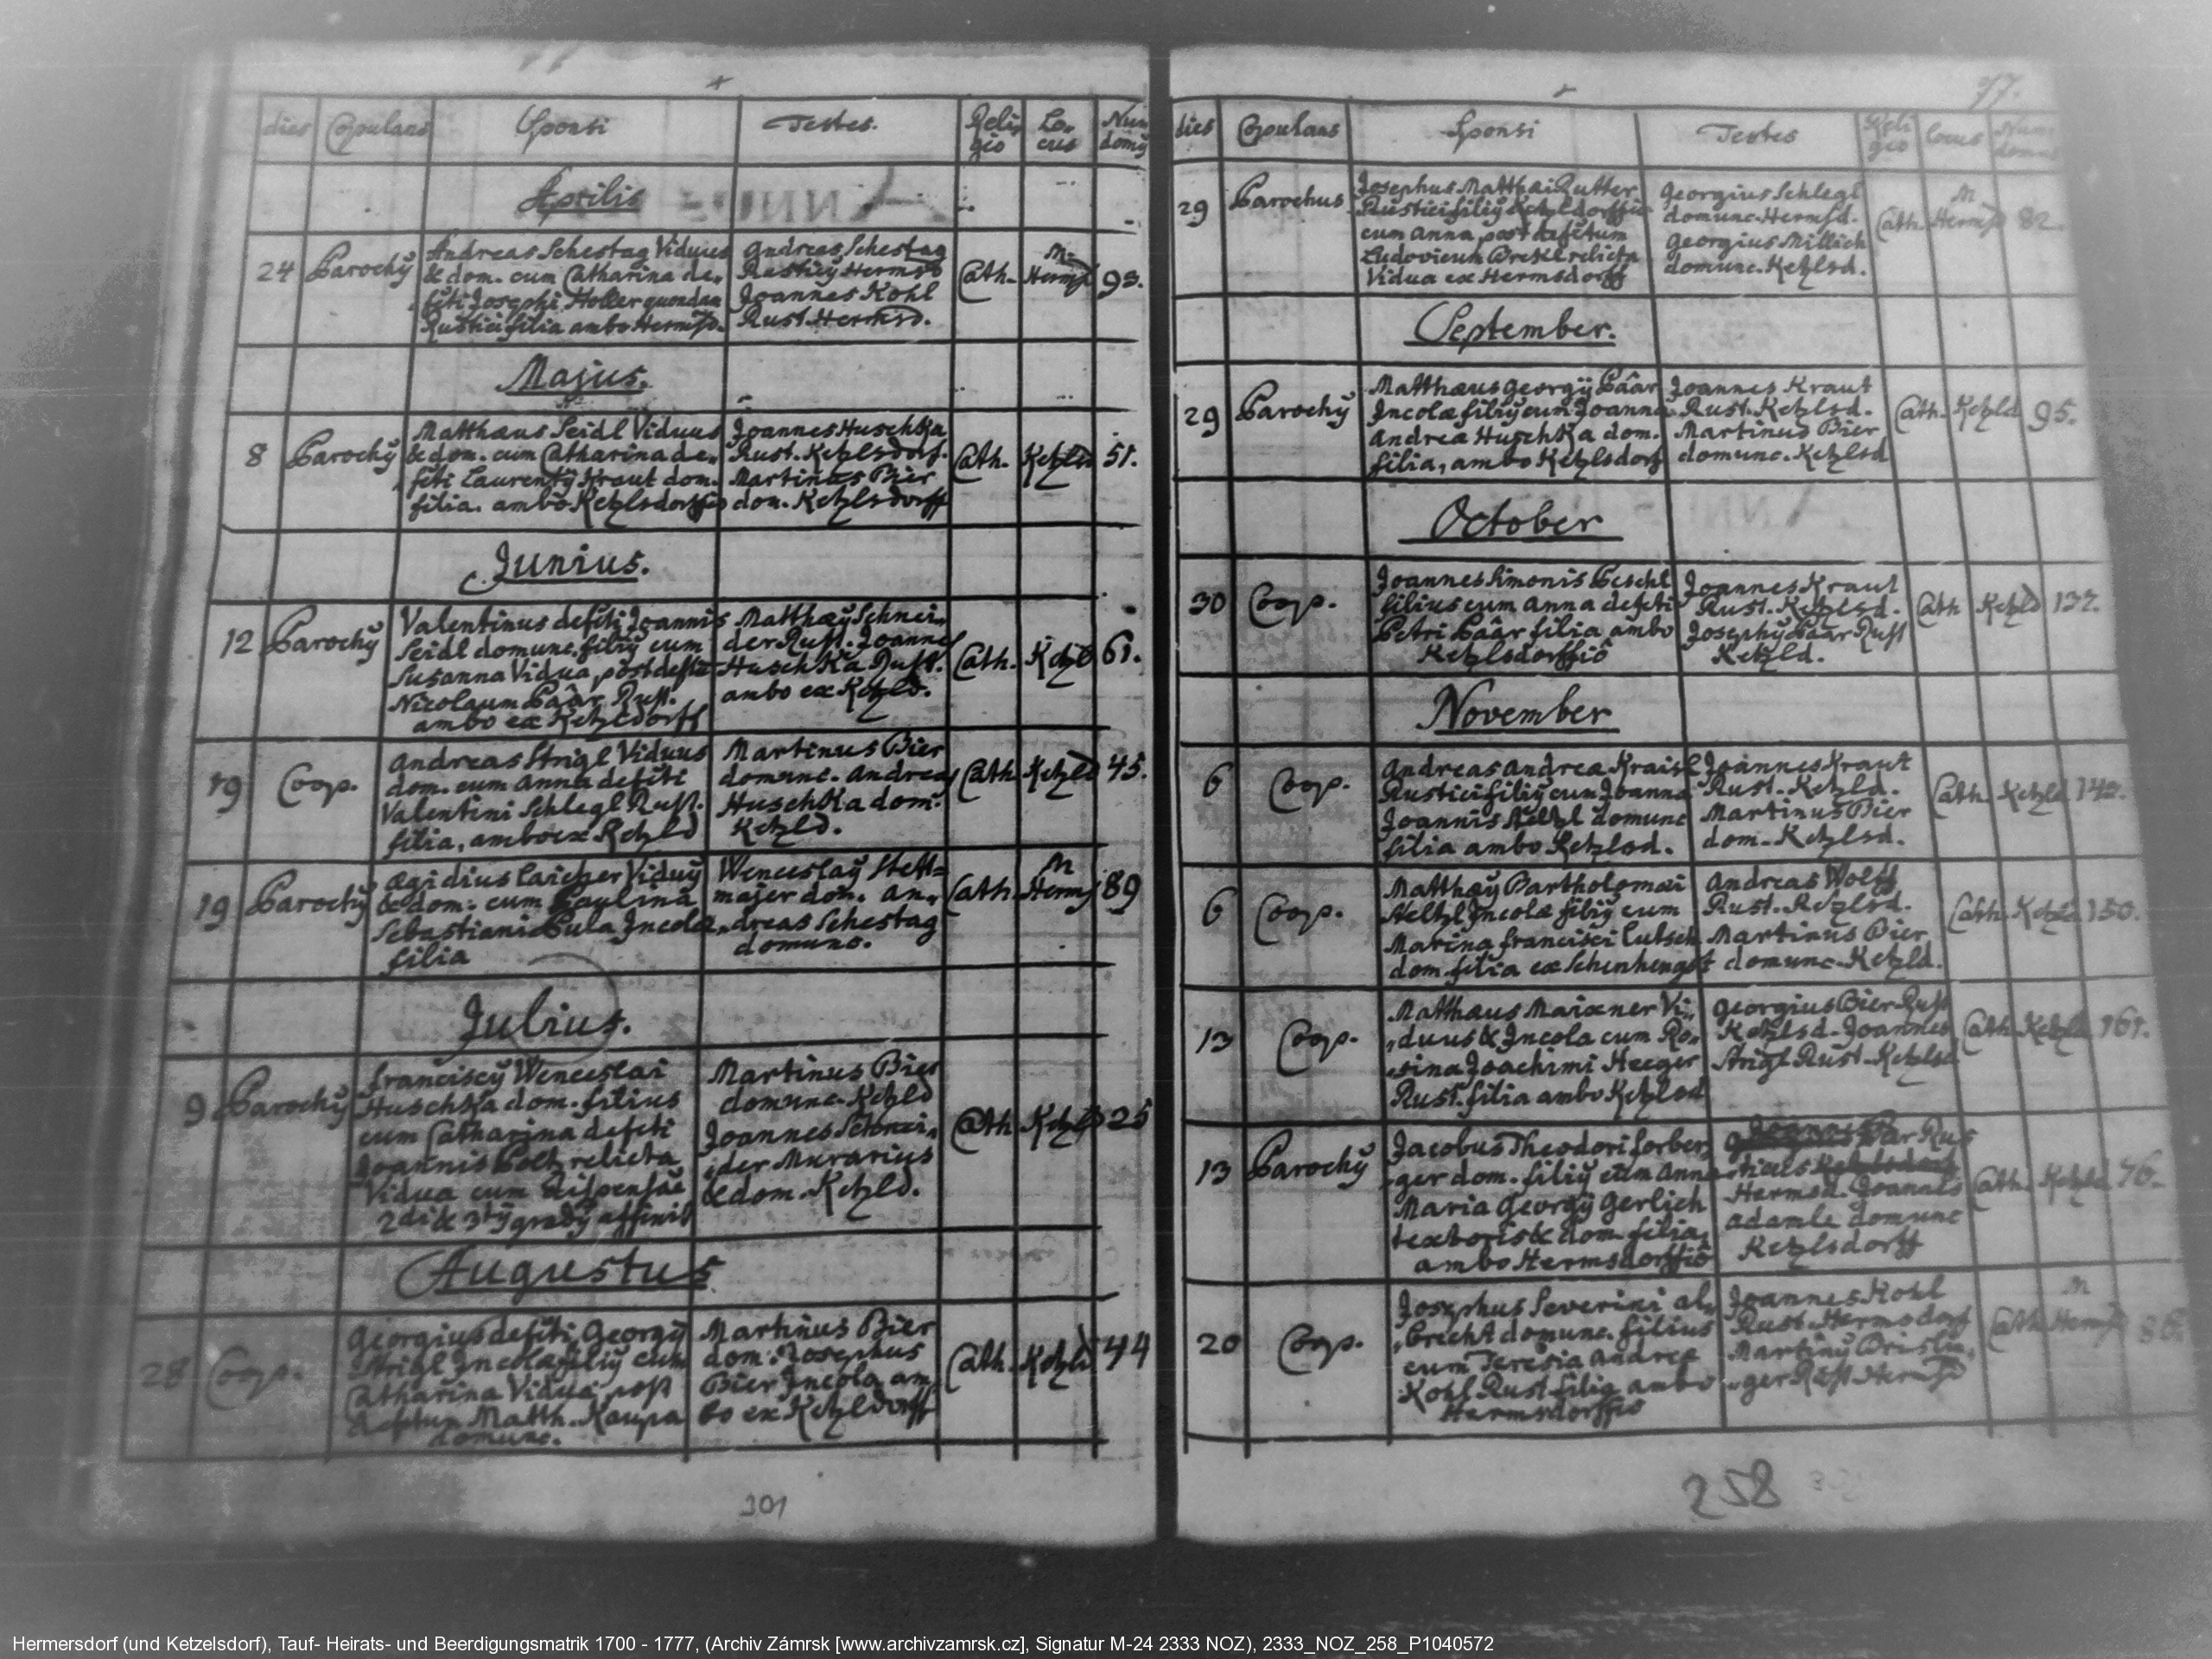 dies Copulans Sponsi Testes. Reli- gio Lo- cus Num domy
Aprilis
24 Parochy
Andreas Schestag Viduus
& dom. cum Catharina de„
„fcti Josephi Holler quondam
Rustici filia ambo Hermsd.
Andreas Schestag
Rusticy Hermsd
Joannes Kohl
Rust. Hermsd.
Cath. M Hermsd 93.
Majus.
8 Parochy
Matthæus Seidl Viduus
& dom. cum Catharina de„
fcti Laurenty Kraut dom.
filia. ambo Ketzlsdorffio
Joannes Huschka
Rust. Ketzlsdorf.
Martinus Bier
dom. Ketzlsdorff
Cath. Ketzld 51.
Junius.
12 Parochy
Valentinus defcti Joannis
Seidl domunc. filiy cum
Susanna Vidua post defctu
Nicolaum Pâar Rust.
ambo ex Ketzldorff
Matthæy Schnei„
der Rust. Joannes
Huschka Rust.
ambo ex Ketzld.
Cath. Ketzld 61.
19 Coop.
Andreas Strigl Viduus
dom. cum Anna defcti
Valentini Schlegl Rust.
filia, ambo ex Ketzld
Martinus Bier
domunc. Andreas
Huschka dom.
Ketzld.
Cath Ketzld 45.
19 Parochy
Ægidius Laicher Viduy
& dom. cum Paulina
Sebastiani Pula Incolæ
filia
Wenceslay Stett=
majer dom. An„
„dreas Schestag
domunc.
Cath M Hermsd 89
Julius.
9 Parochy
Franciscy Wenceslai
Huschka dom. filius
cum Catharina defcti
Joannis Poltz relicta
Vidua cum dispensãe
2di & 3ty grady affinit
Martinus Bier
domunc. Ketzld
Joannes Schnei„
„der Murarius
& dom. Ketzld.
Cath Ketzld 25
Augustus
28 Coop.
Georgius defcti Georgy
Strigl Incolæ filiy cum
Catharina Vidua post
defctum Matth. Kaupa
domunc.
Martinus Bier
dom. Josephus
Bier Incola am„
bo ex Ketzldorff
Cath. Ketzld 44
301
77.
dies Copulans Sponsi Testes Reli gio locus Num: domus
29 Parochus
Josephus Matthæi Rutter
Rustici filiy Ketzldorffio
cum Anna post defctum
Ludovicum relicta
Vidua ex Hermsdorff
Georgius Schlegl
domunc. Hermsd.
Georgius Millich
domunc. Ketzlsd.
Cath. M Hermsd 82.
September.
29 Parochy
Matthæus Georgy Pâar
Incolæ filiy cum Joanna
Andreæ Huschka dom.
filia, ambo Ketzlsdorf
Joannes Kraut
Rust. Ketzlsd.
Martinus Bier
domunc. Ketzlsd
Cath. Ketzld 95.
October
30 Coop.
Joannes Simonis Peschl
filius cum Anna defcti
Petri Pâar filia ambo
Ketzlsdorffio
Joannes Kraut
Rust. Ketzlsd.
Josephy Pâar Rust
Ketzld.
Cath Ketzld 137.
November
6 Coop.
Andreas Andreæ Kraisl
Rustici filiy cum Joanna
Joannis Neltzl domunc
filia ambo Ketzlsd.
Joannes Kraut
Rust. Ketzld.
Martinus Bier
dom. Ketzlsd.
Cath. Ketzld 142.
6 Coop.
Matthæy Bartholomæi
Neltzl Incolæ filiy cum
Marina Francisci Lutsch
dom. filia ex Schenhengst
Andreas Wolff
Rust. Ketzlsd.
Martinus Bier
domunc. Ketzld.
Cath. Ketzld 150.
13 Coop.
Matthæus Maixner Vi„
„duus & Incola cum Ro„
„sina Joachimi Heeger
Rust. filia ambo Ketzlsd
Georgius Bier Rust
Ketzlsd. Joannes
Strigl Rust. Ketzlsd
Cath Ketzld 161.
13 Parochy
Jacobus Theodori Forber„
„ger dom. filiy cum Anna
Maria Georgy Gerlich
textoris & dom. filia,
ambo Hermsdorffio
Joannes
Pâar Rus
„ticus
Hermsd. Joannes
Adamle domunc
Ketzlsdorff
Cath. Ketzld 76.
20 Coop.
Josephus Severini Al„
„brecht domunc. filius
cum Teresia Andreæ
Kohl Rust filia ambo
Hermsdorffio
Joannes Kohl
Rust. Hermsdorf
Martiny Brislin„
„ger Rust Hermsd
Cath M Hermsd
258
Hermersdorf (und Ketzelsdorf), Tauf- Heirats- und Beerdigungsmatrik 1700 - 1777, (Archiv Zámrsk [www.archivzamrsk.cz], Signatur M-24 2333 NOZ), 2333_NOZ_258_P1040572